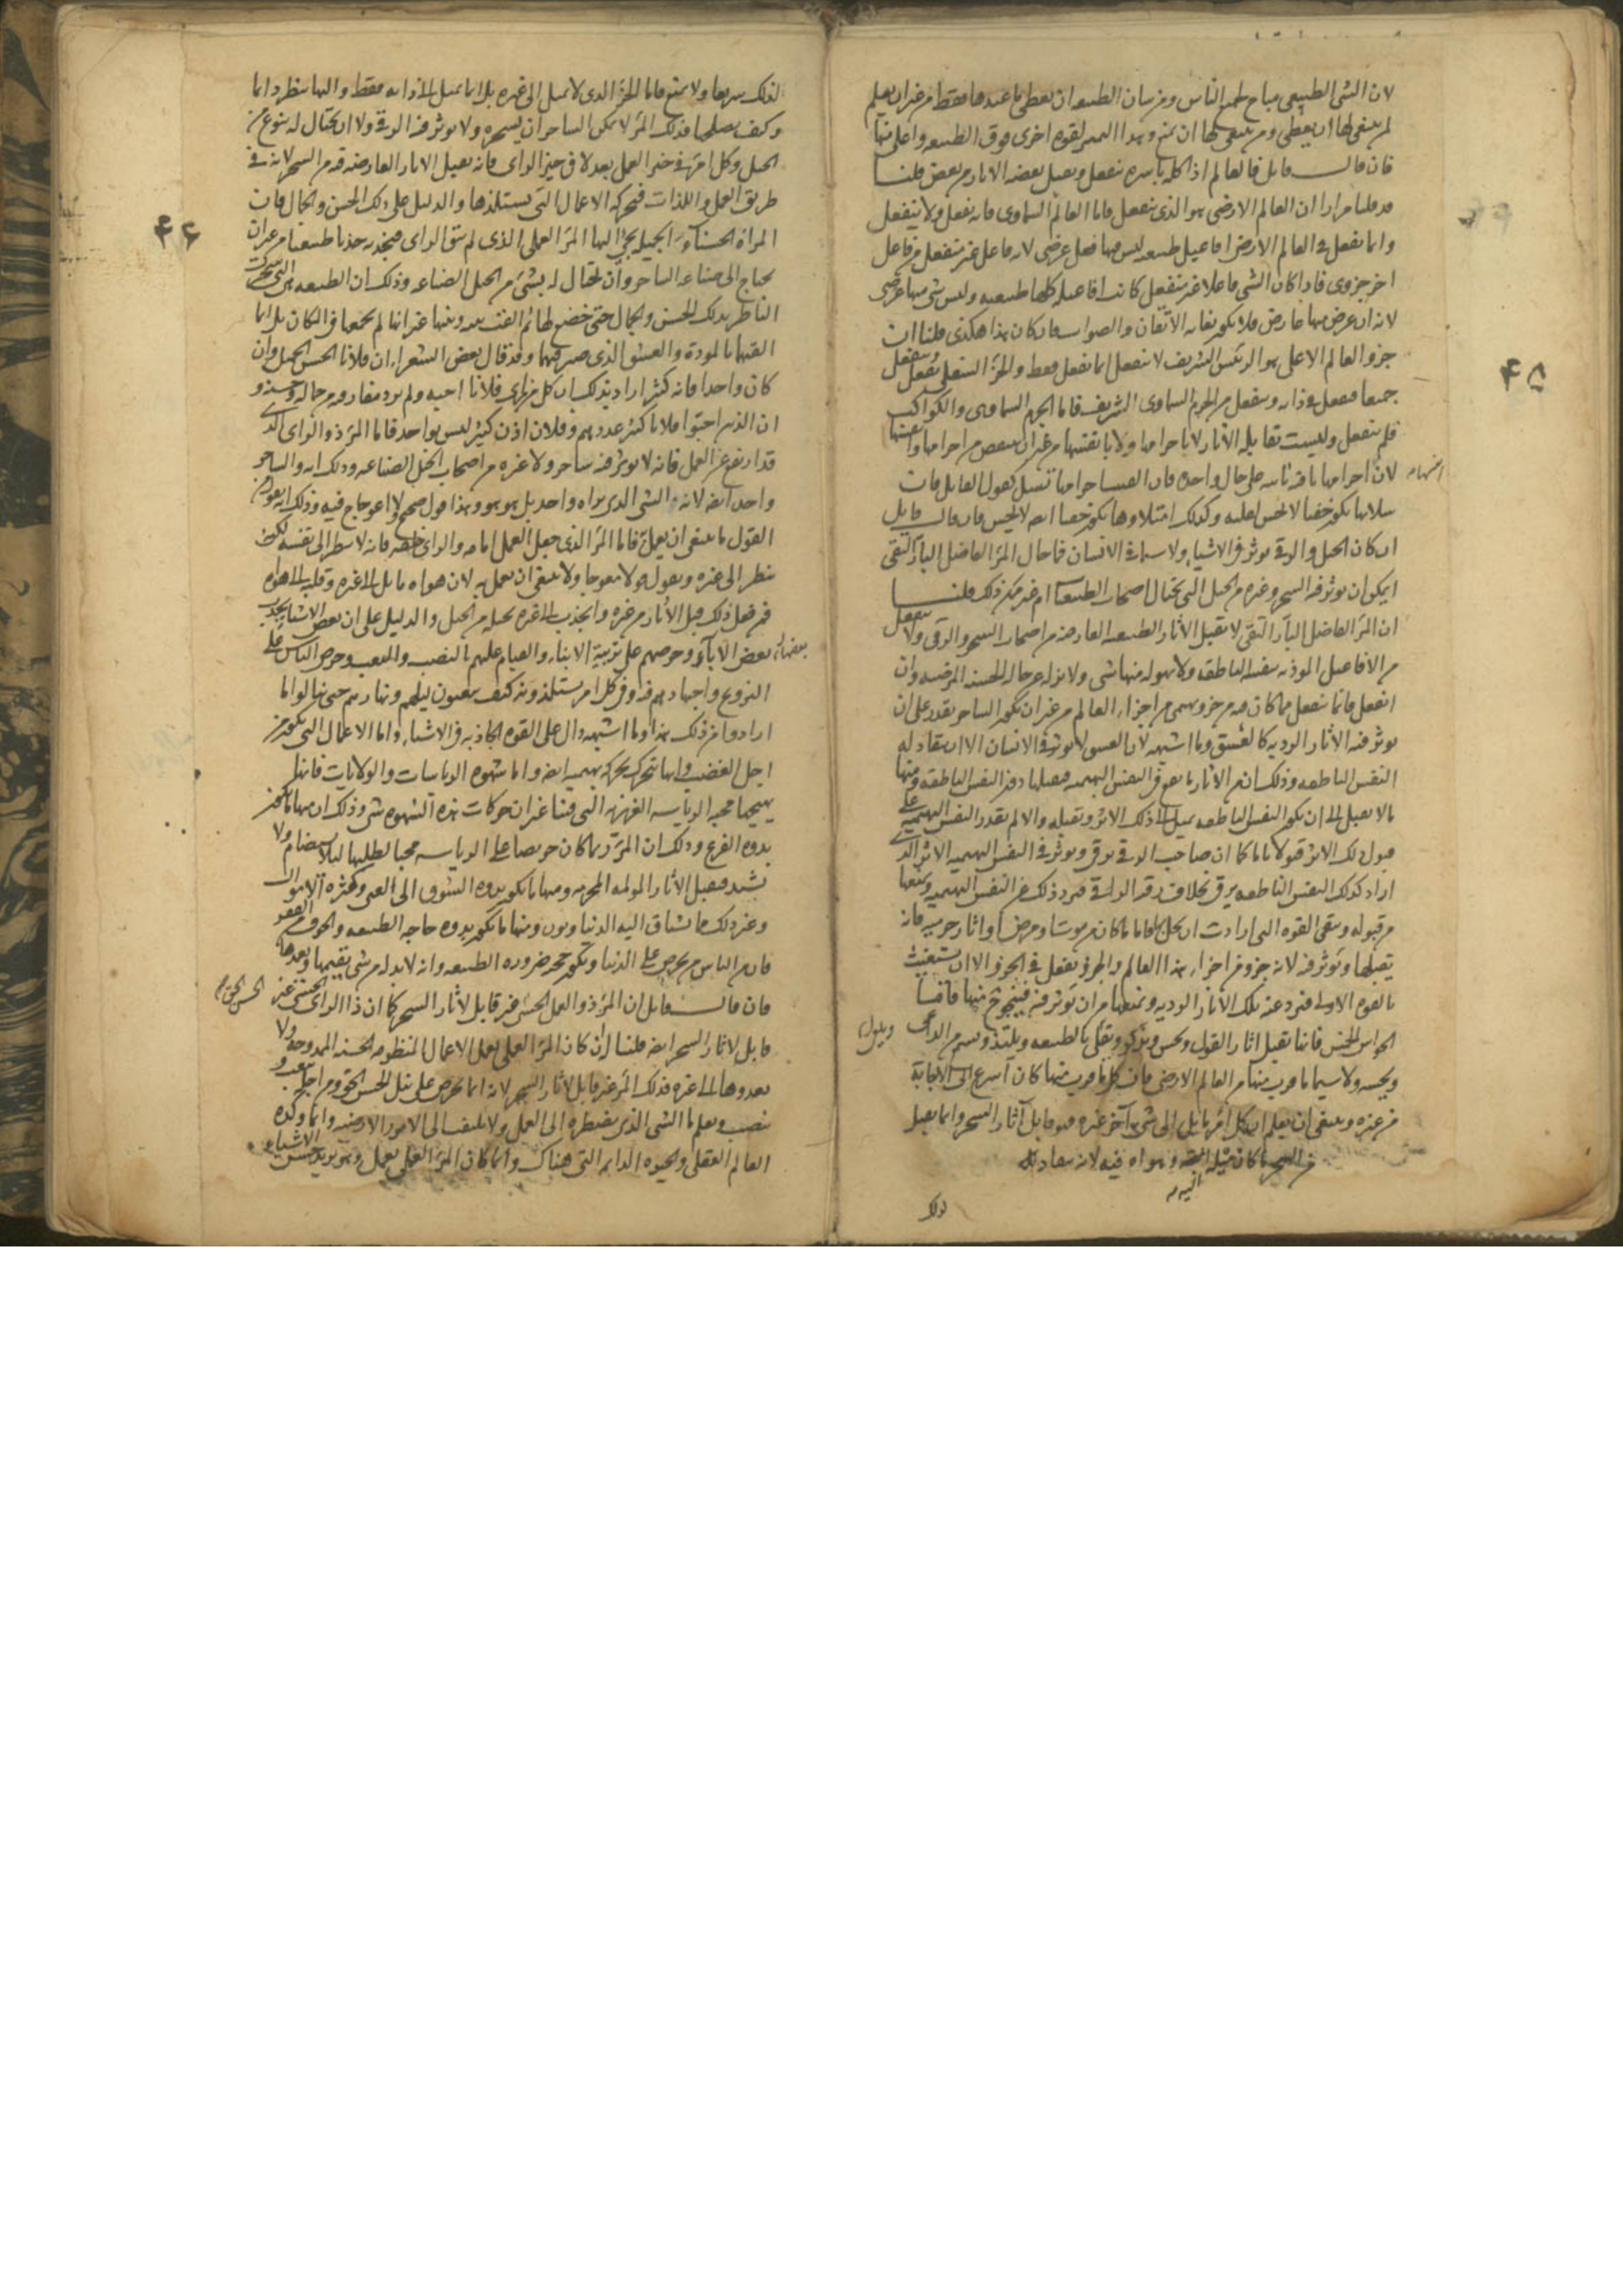 لان الشى الطبيعى مباح لجميع الناس ومن شان الطبيعه ان تعطى ما عندها فقط من غير ان تعلم
لمن ينبغى لها ان تعطى ومن ينبغى لها ان تمنع وهذا التميز لقوه اخرى فوق الطبيعه واعلى منها
فان قال قايل فالعالم اذا كله باسره ينفعل ويقبل بعضه الاثار من بعض قلنا
قد قلنا مرارا ان العالم الارضى هو الذى ينفعل فاما العالم السماوى فانه يفعل ولا ينفعل
وانما يفعل فى العالم الارضى افاعيل طبيعيه ليس فيها فعل عرضى لانه فاعل غير منفعل من فاعل
اخر جزوى فاذا كان الشى فاعلا غير منفعل كانت افاعيله كلها طبيعيه وليس شى منها عرضى
لانه ان عرض منها عارض فلا يكون بغايه الاتقان والصواب فان كان هذا هكذى قلنا ان
جزو العالم الاعلى هو الرئيس الشريف لا ينفعل انما يفعل فقط والجزؤ السفلى يفعل وينفعل
جميعا فيفعل فى ذاته وينفعل من الجرم السماوى الشريف فاما الجرم السماوى والكواكب
فلم ينفعل وليست بقابله الاثار لا باجرامها ولا بانفسها من غير ان ينقص من اجرامها وانفسها
انفسها
لان اجرامها باقيه ثابته على حال واحده فان اجرامها تسيل كقول القايل فان
سيلانها يكون خفيا لا يحس لعلته وكذلك امتلاوها يكون خفيا ايضا لا يحس فان قال قايل
ان كان الحيل والرقى يوثر فى الاشيا ولا سيما فى الانسان فما حال المرؤ الفاضل البارّ التقى
ايمكن ان يوثر فيه السحر وغيره من الحيل التى يحتال اصحاب الطبيعيات ام غير ممكن ذلك قلنا
ان المرؤ الفاضل البارّ التقى لا يقبل الاثار الطبيعيه العارضه من اصحاب السحر والرقى ولا ينفعل
من الافاعيل الموذيه بنفسه الناطقه ولا يهوله منها شى ولا يزيله عن حاله الحسنه المرضيه وان
انفعل فانما ينفعل بما كان فيه من جزو بهيمى من اجزاء العالم من غير ان يكون الساحر يقدر على ان
يوثر فيه الاثار الرديه كالعشق وما اشبهه لان العشق لا يوثر فى الانسان الا ان ينقاد له
النفس الناطقه وذلك ان من الاثار ما يقع فى النفس البهيميه فيقبلها دون النفس الناطقه ومنها
ما لا يقبل الا ان يكون النفس الناطقه يميل الى ذلك الاثر وتقبله والا لم تقدر النفس البهيميه على
قبول ذلك الاثر قبولا تاما كما ان صاحب الرقى يرقى ويوثر فى النفس البهيميه الاثر الذى
اراد كذلك النفس الناطقه ترقى بخلاف رقيه الراقى فترد ذلك عن النفس البهيميه ويمنعها
من قبوله وتنفى القوه التى ارادت ان تحل بها فاما ما كان من موت او مرض او اثار جرميه فانه
يقبلها ويوثر فيه لانه جزو من اجزاء هذا العالم والجزؤ يفعل فى الجزؤ الا ان يستغيث
بالقوه الاولى فترد عنه تلك الاثار الرديه وتمنعها من ان توثر فيه فينجو منها فاما
الحواس الخمس فانها تقبل اثار القول وتحس وتذكر وتقلق بالطبيعه وتلتذ وتسمع من الداعى
وتقول
وتجيبه ولا سيما ما قرب منها من العالم الارضى فان كل ما قرب منها كان اسرع الى الاجابة
من غيره وينبغى ان يعلم ان كل امرؤ مايل الى شى آخر غيره فهو قابل آثار السحر وانما يقبل
من السحر ما كان ميله اليه وهواه فيه لانه ينقاد له
لذلك
٤٥
لذلك سريعا ولا يمتنع فاما المرؤ الذى لا يميل الى غيره بل انما يميل الى ذاته فقط واليها ينظر دايما
وكيف يصلحها فذلك المرؤ لا يمكن الساحر ان يسحره ولا يوثر فيه الرقى ولا ان يحتال له بنوع من
الحيل وكل امرؤ فى حيز العمل يعد لا فى حيز الراى فانه يقبل الاثار العارضه فيه من السحر لانه فى
طريق العمل واللذات فتحركه الاعمال التى يستلذها والدليل على ذلك الحسن والجمال فان
المراة الحسناء الجميلة يجرى اليها المرؤ العملى الذى لم يبق الراى فتجذبه جذبا طبيعيا من غير ان
يحتاج الى صناعه الساحر وان تحتال له بشئ من الحيل الصناعه وذلك ان الطبيعه هى التى سحرت
الناظر بذلك الحسن والجمال حتى خضع لها ثم الفت بينه وبينها غير انها لم تجمعها فى المكان بل انما
القتهما بالمودة والعشق الذى صيرت فيهما وقد قال بعض الشعراء ان فلانا الحسن الجميل وان
كان واحدا فانه كثير اراد بذلك ان كل من راى فلانا احبه ولم يرد مفارقته من حاله وحسنه و
ان الذين احبوا فلانا كثير عددهم وفلان اذن كثير ليس بواحد فاما المرؤ ذو الراى الذى
قد ارتفع عن العمل فانه لا يوثر فيه ساحر ولا غيره من اصحاب الحيل الصناعه وذلك انه والساحر
واحد ايضا لانه الشى الذى يراه واحد بل هو هو وهذا قول صحيح لا اعوجاج فيه وذلك انه يقول من
القول ما ينبغى ان يعمل فاما المرؤ الذى جعل العمل امامه والراى خلفه فانه لا ينظر الى نفسه لكنه
ينظر الى غيره ويقول قولا معوجا ولا ينبغى ان يعمل به لان هواه مايل الى غيره وقلبه الى هواه
فمن فعل ذلك قبل الاثار من غيره وانجذب الى غيره بحيله من الحيل والدليل على ان بعض الاشياء يجذب
بعضها
بعض الاباء وحرصهم على تربية الابناء والقيام عليهم بالنصب والتعب وحرص الناس على
التزويج واجتهادهم فيه وفى كل امر يستلذونه كيف يتعبون ليلهم ونهارهم حتى ينالوا ما
ارادوا من ذلك هذا وما اشبهه دال على القوه الجاذبه فى الاشياء واما الاعمال التى يكون من
اجل الغضب فانها تتحرك بحركه بهيميه ايضا واما شهوه الرياسات والولايات فانها
يهيجها محبه الرياسه الغريزيه التى فينا غير ان حركات هذه الشهوه شتى وذلك ان منها ما يكون
بدوه الفزع وذلك ان المرؤ ربما كان حريصا على الرياسه محبا لطلبها ليلا يضام ولا
يشتد فيقبل الاثار المولمه المحزنه ومنها ما يكون بدوه الشوق الى الغنى وكثرة الاموال
وغير ذلك مما يشتاق اليه الدنياويون ومنها ما يكون بدوه حاجه الطبيعه والخوف من الفقر
فان من الناس من يحرص على الدنيا ويكون حجته ضروره الطبيعه وانه لا بد له من شى يقيمها ويمدها
فان قال قايل ان المرؤ ذو العمل الحسن غير قابل لاثار السحر كما ان ذا الراى الحسن غير
قابل لاثار السحر ايضا قلنا ان كان المرؤ العملى يعمل الاعمال المنظومه الحسنه الممدوحه ولا
يعدوها الى غيره فذلك المرؤ غير قابل لاثار السحر لانه انما يحرص على نيل الحسن الحق ومن اجله
ينصب ويعلم ما الشى الذى يضطره الى العمل ولا يلتفت الى الامور الارضيه وانما وكده
العالم العقلى والحيوه الدايمه التى هناك وانما كان المرؤ العملى يعمل وهو يريد حسن الاشياء
٤٤